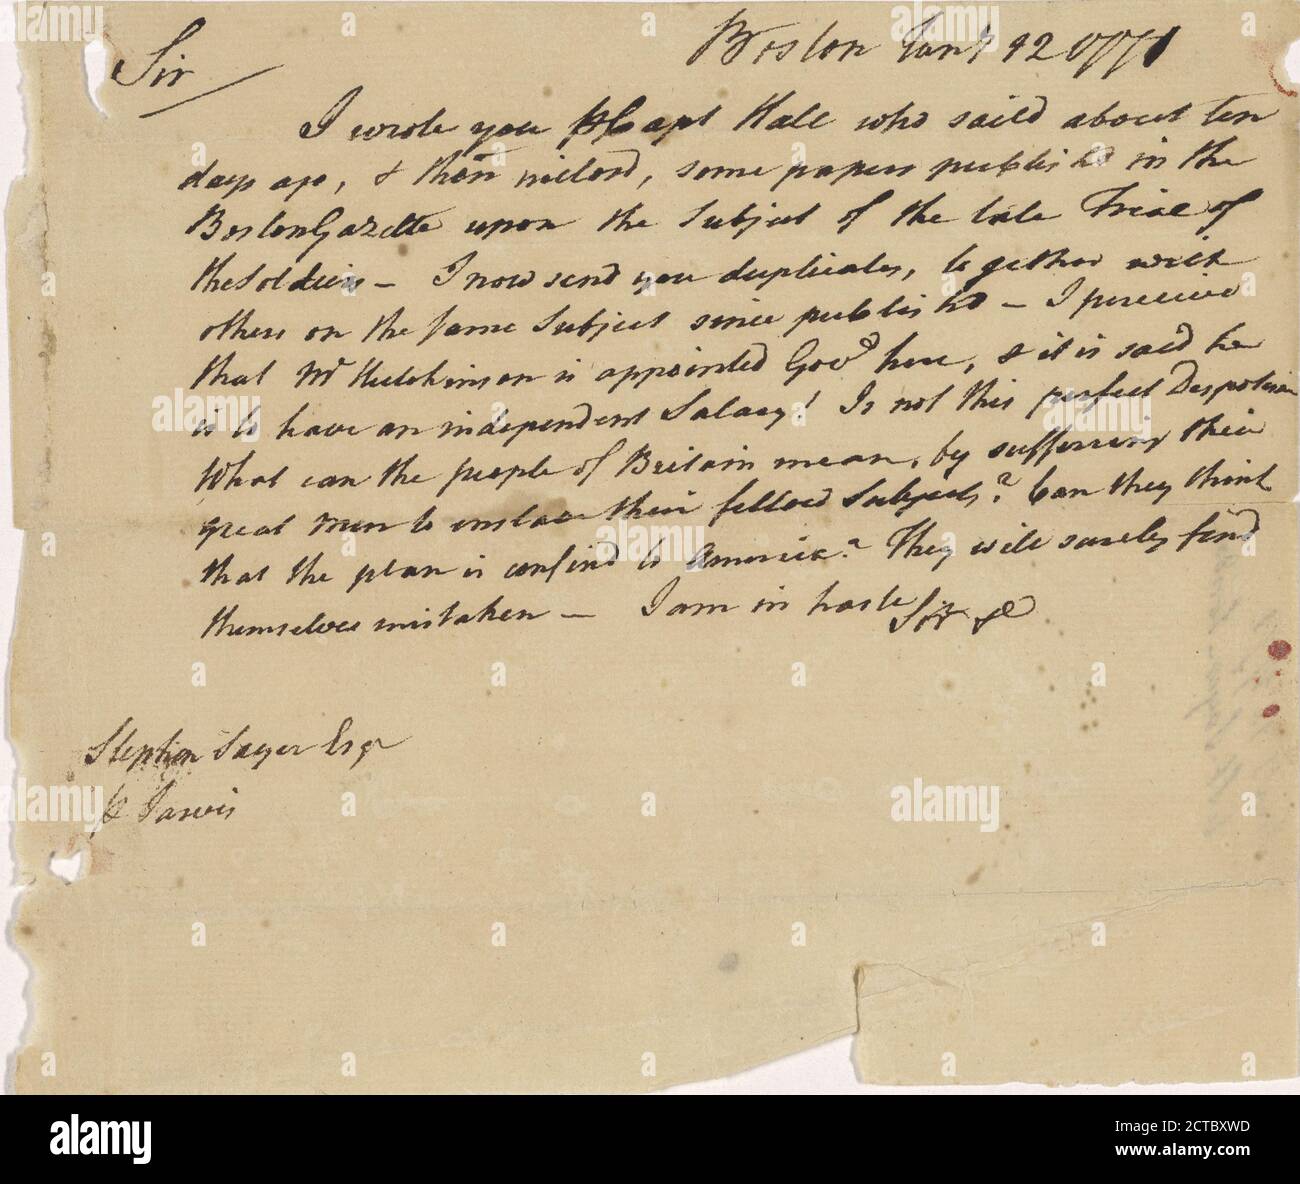 Boston Jany 12 1771
Sir
I wrote you p Capt Hall who saild about ten
days ago, & therein inclosd, some papers publishd in the
Boston Gazette upon the Subject of the late Trial of
the Soldiers – I now send you duplicates, together with
others on the same Subject since publishd – I perceive
that Mr Hutchinson is appointed Govr here, & it is said he
is to have an independent Salary! Is not this perfect Despotism
What can the people of Britain mean, by suffering their
great men to enslave their fellow Subjects? Can they think
that the plan is confind to America? They will surely find
themselves mistaken – I am in haste Sir &c
Stephen Sayer Esqr
p Jarvis
alamy
a
alamy
Image ID: 2CTBXWD
www.alamy.com